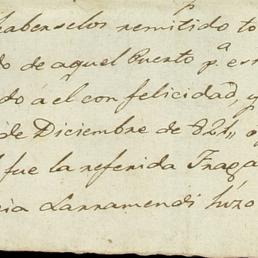 haberselos remitido to
do de aquel Puerto p.a es
do á el con felicidad, y
de Diciembre de 821,,
fue la referida Fraga
cia Larramendi hizo